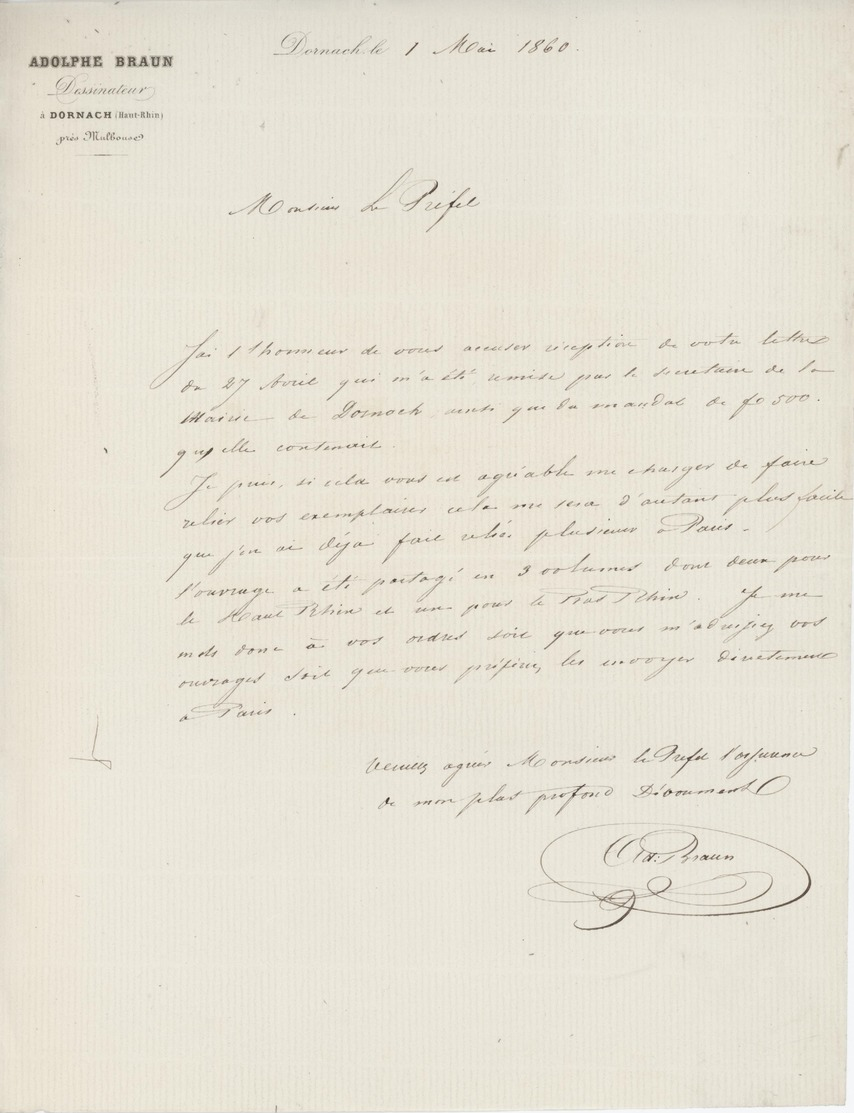 ADOLPHE BRAUN
Dessinateur
à DORNACH (Haut-Rhin)
près Mulhouse
Dornach, le 1 Mai 1860.
Monsieur Le Préfet
J'ai l'honneur de vous accuser réception de votre lettre
du 27 Avril qui m'a été remise par le secretaire de la
Mairie de Dornach ainsi que du mandat de f° 500.
qu'elle contenait.
Je puis, si cela vous est agréable me charger de faire
relier vos exemplaires cela me sera d'autant plus facile
que j'en ai déja fait relié plusieurs à Paris.
l'ouvrage a été partagé en 3 volumes dont deux pour
le Haut Rhin et un pour le Bas Rhin. Je me
mets donc à vos ordres soit que vous m'adressiez vos
ouvrages soit que vous préfériez les envoyer directement
à Paris.
Veuillez agréer Monsieur le Préfet l'assurance
de mon plus profond Dévoument
Ad: Braun